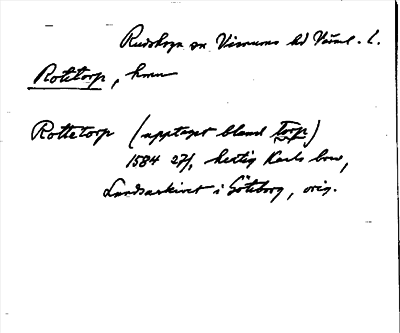 Rudskoga sn Visnums hd Värml. l.
Rottorp, hmn
Rottetorp (upptaget bland torp)
1584 27/1, hertig Karls brev,
Landsarkivet i Göteborg, orig.